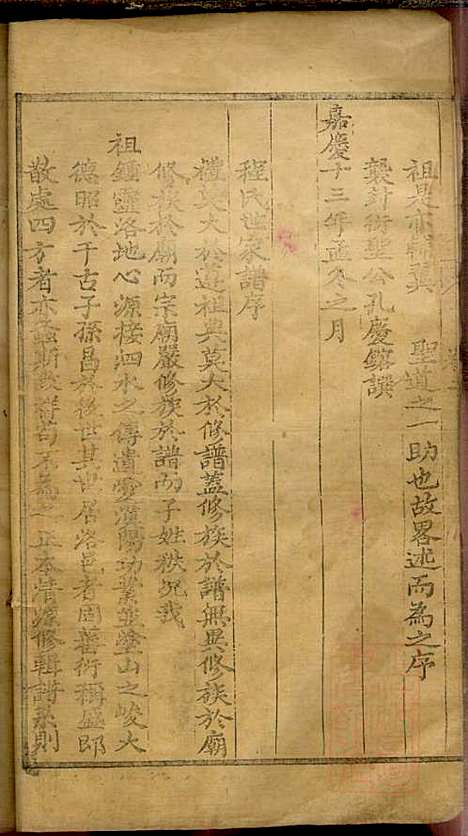 祖是亦翼 聖道之一助也故畧述而為之序
襲封衍聖公孔慶鎔譔
嘉慶十三年孟冬之月
程氏世家譜序
禮莫大於遵祖典莫大於修譜蓋修族於譜無異修族於廟
修族於廟而宗廟嚴修族於譜而子姓秩況我
祖鍾靈洛地心源接泗水之傳遺澤濱陽功業並嵩山之峻大
德昭於千古子孫昌於後世其世居洛邑者固蕃衍稱盛即
散處四方者亦螽斯苟不為之正本清源修輯譜系則